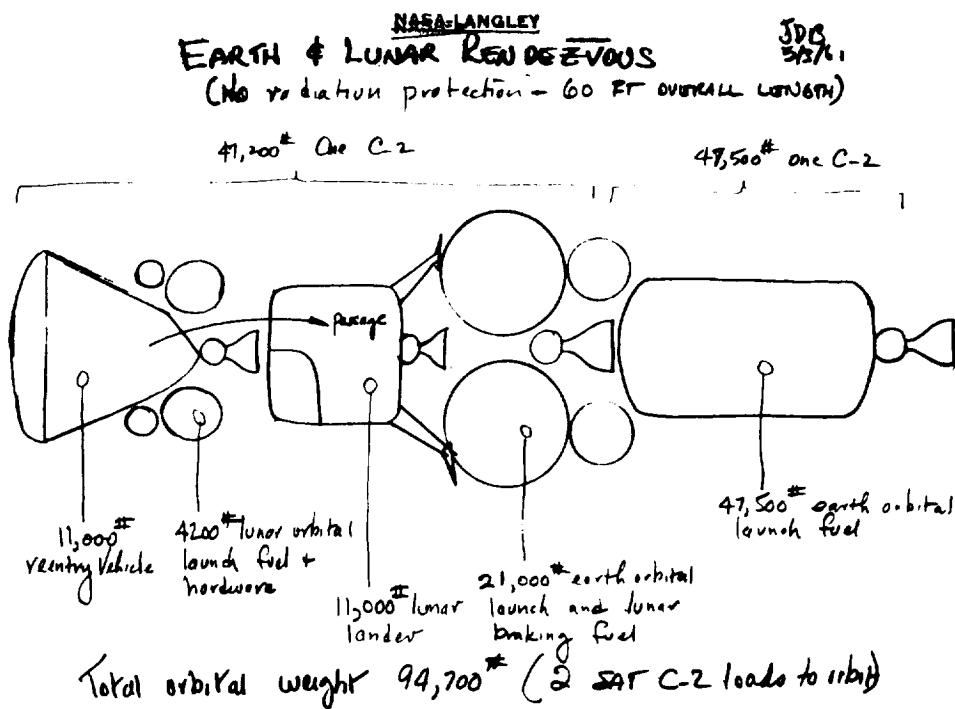 NASA-LANGLEY
EARTH & LUNAR RENDEZVOUS
JDB
(NO radiation protection - 60 FT OVERALL LENGTH)
47,200# One C-2
47,500# one C-2
passage
11,000#
reentry vehicle
4200# lunar orbital
launch fuel +
hardware
11,000# lunar
lander
21,000# earth orbital
launch and lunar
braking fuel
47,500# earth orbital
launch fuel
Total orbital weight 94,700# (2 SAT C-2 loads to orbit)